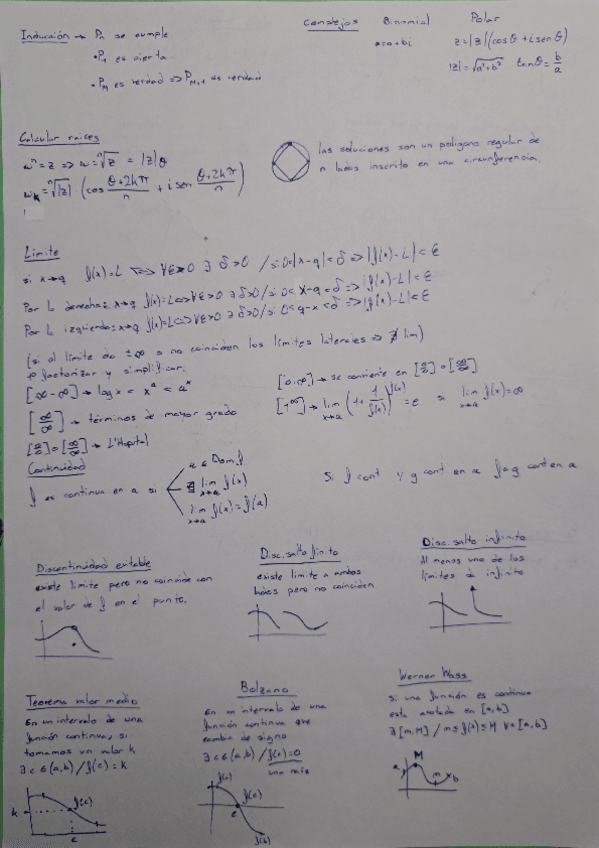 Inducción → Pn se cumple
• P1 es cierta
• PM es verdad => PM+1 es verdad
Complejos Binomial Polar
z=a+bi z=|z|(cosθ + i senθ)
|z|=√a²+b² tanθ=b/a
Calcular raices
wⁿ=z => w=ⁿ√z = |z|θ
wk=ⁿ√|z| · (cos θ+2kπ/n + i sen θ+2kπ/n)
las soluciones son un poligono regular de
n lados inscrito en una circunferencia.
Límite
si x→a f(x)=L <=> ∀ε>0 ∃ δ>0 / si 0<|x-a|<δ => |f(x)-L|<ε
Por la derecha: x→a f(x)=L<=>∀ε>0 ∃ δ>0/si 0< x-a <δ =>|f(x)-L|<ε
Por la izquierda: x→a f(x)=L<=>∀ε>0 ∃ δ>0/si 0<a-x<δ =>|f(x)-L|<ε
(si el límite da ±∞ o no coinciden los límites laterales => ∄ lim)
factorizar y simplificar.
[∞-∞] → log x < xᵃ < aˣ
[∞/∞] → términos de mayor grado
[0/0] o [∞/∞] → L'Hopital
[0·∞] → se convierte en [0/0] o [∞/∞]
[1^∞] → lim x→a (1+ 1/f(x))^f(x) = e si lim x→a f(x)=∞
Continuidad
f es continua en a si
a ∈ Dom f
∃ lim x→a f(x)
lim x→a f(x)=f(a)
Si f cont y g cont en a f∘g cont en a
Discontinuidad evitable
existe limite pero no coincide con
el valor de f en el punto.
Disc. salto finito
existe limite a ambos
lados pero no coinciden
Disc. salto infinito
Al menos uno de los
límites da infinito
Teorema valor medio
En un intervalo de una
función continua, si
tomamos un valor k
∃ c ∈(a,b) / f(c) = k
k f(c)
c
Bolzano
En un intervalo de una
función continua que
cambia de signo
∃ c ∈ (a,b) / f(c)=0
una raíz
f(a)
f(c)
c
f(b)
Werner Wass
Si una función es continua
esta acotada en [a,b]
∃ [m,M] / m≤f(x)≤M ∀x[a,b]
a M m b